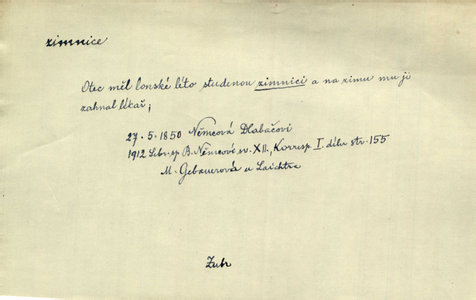 zimnice
Otec měl lonské léto studenou zimnici a na zimu mu ji
zahnal lékař;
27. 5. 1850 Němcová Dlabačovi
1912 Sebr. sp. B. Němcové sv. XII., Korresp. I. dílu str. 155
M. Gebauerová u Laichtra
Zubr